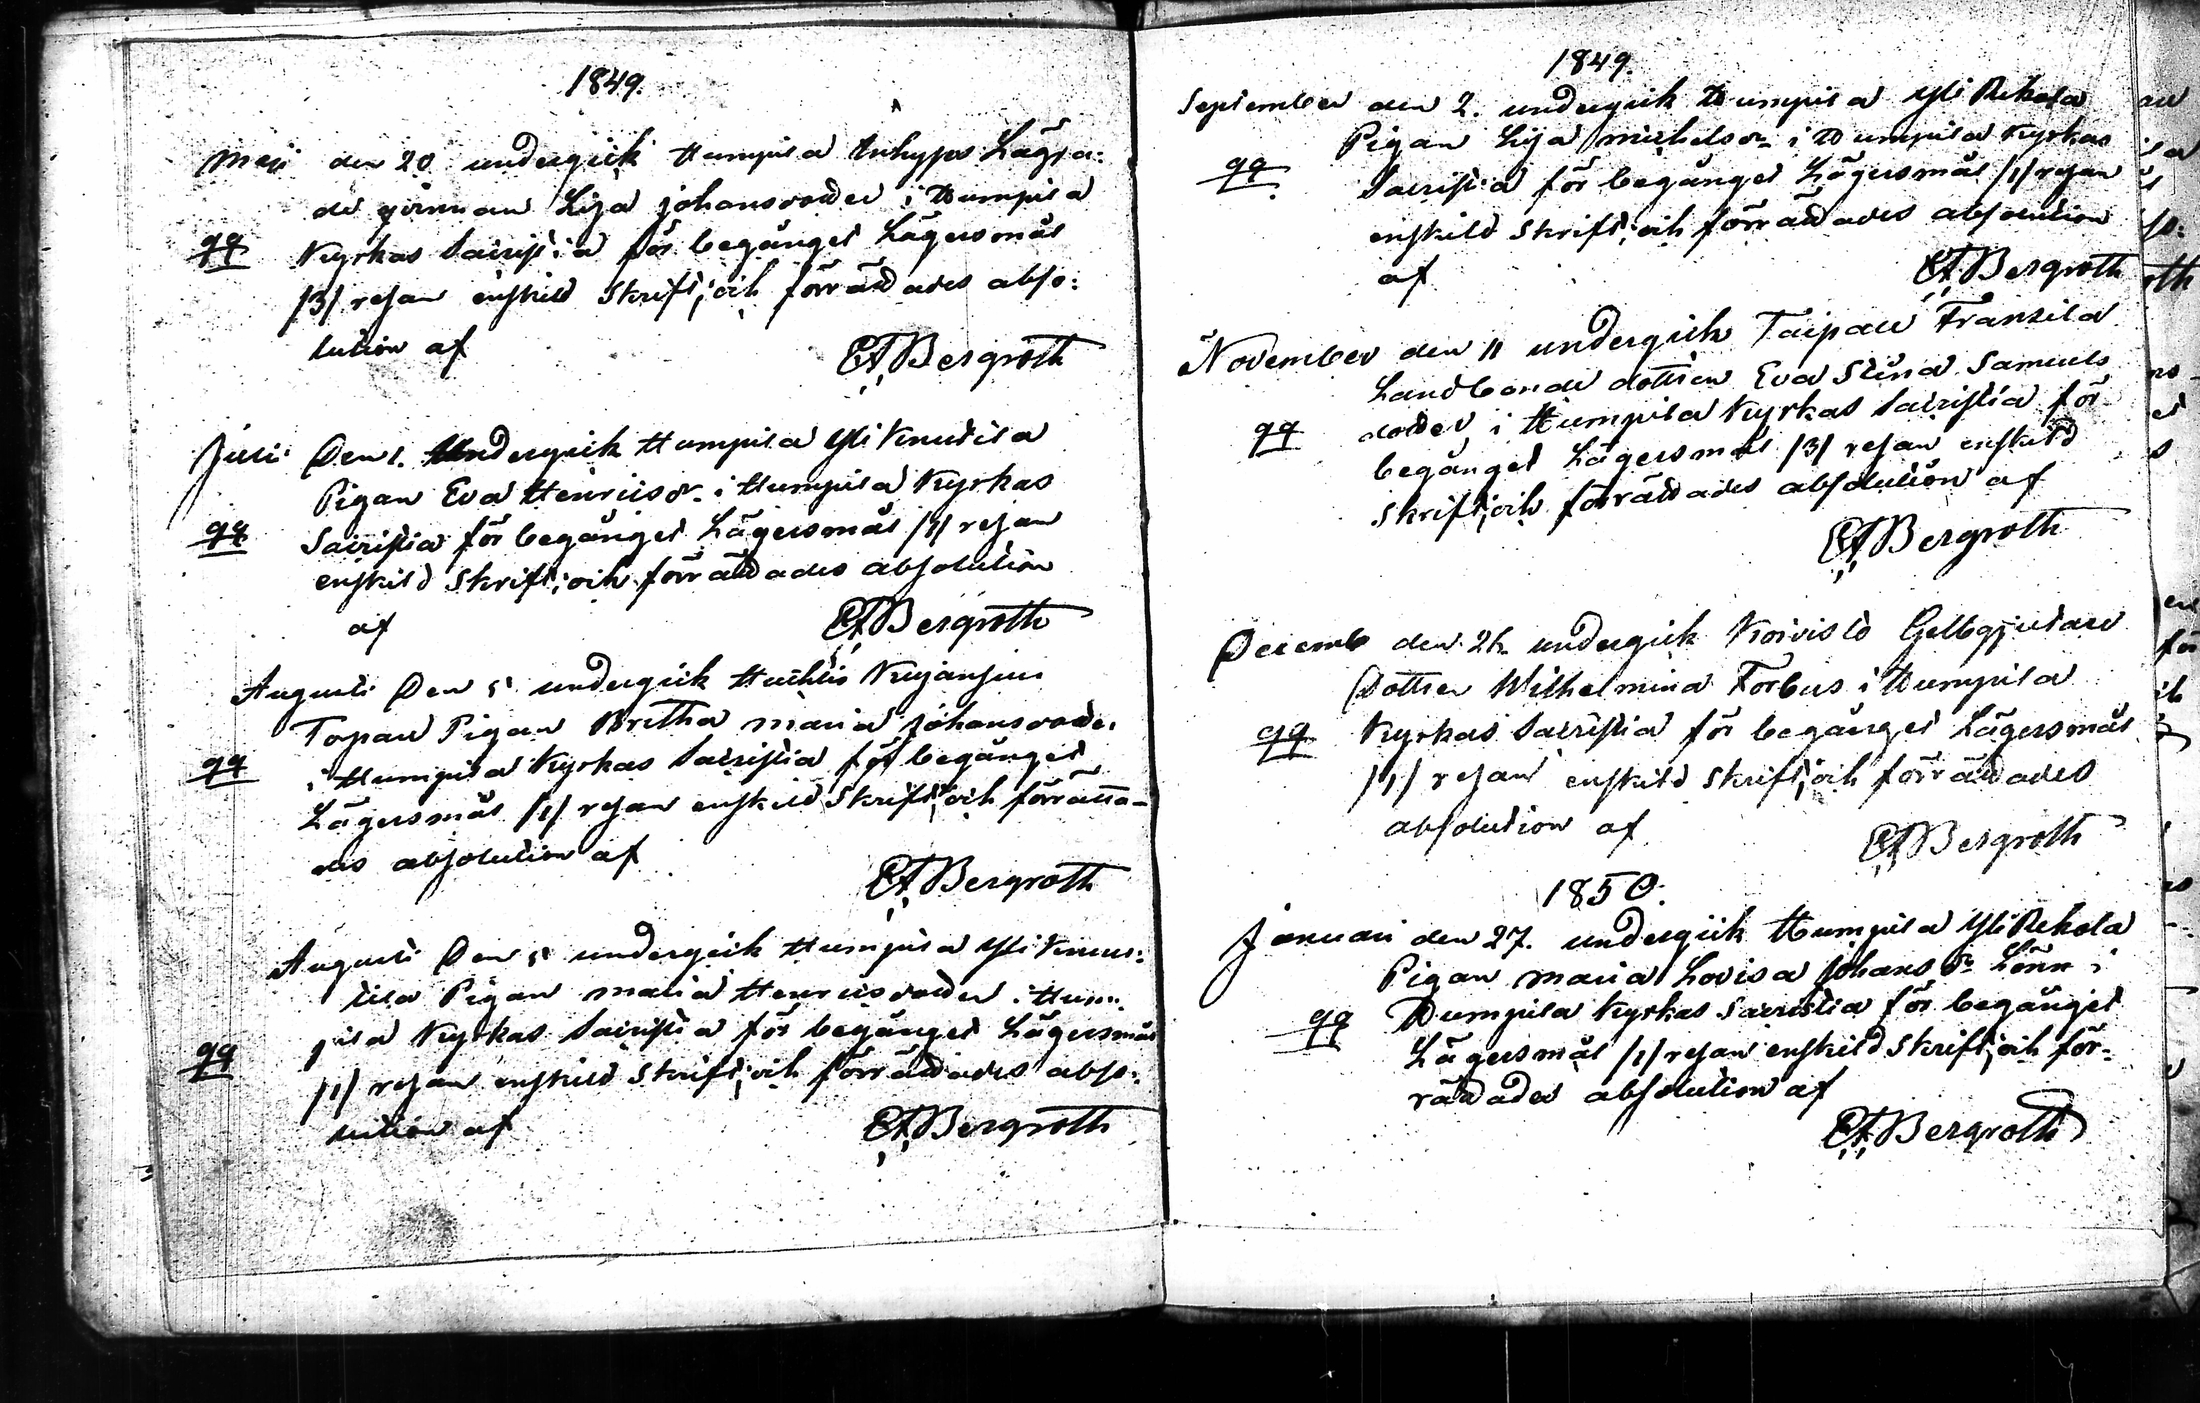 1849.
Maji den 20 undergick Humpila Inhyses Lägra:
de qvinnan Lisa Johansdotter i Humpila
qq Kyrkas Sacristia för begånget Lägersmål
/3/ resan enskild Skrift; och förrättades abso:
lution af EABergroth
Julii Den 1. Undergick Humpila Yli Knutila
Pigan Eva Henricsdr. i Humpila Kyrkas
qq Sacristia för begånget Lägersmål /1/ resan
enskild Skrift; och förrättades absolution
af EABergroth
Augusti Den 5 undergick Huhtis Kujanjuu
Topan Pigan Britha Maria Johansdotter
qq i Humpila Kyrkas Sacristia för begånget
Lägersmål /1/ resan enskild Skrift; och förrätta-
des absolution af
EABergroth
Augusti Den 5 undergick Humpila Yli Knu:
tila Pigan Maria Henricsdotter i Hum
pila Kyrkas Sacristia för begånget Lägersmål
qq /1/ resan enskild Skrift; och förrättades abso:
lution af EABergroth
1849.
September den 2. undergick Humpila Yli Rekola
Pigan Lisa Michelsdr. i Humpila Kyrkas
qq Sacristia för begånget Lägersmål /1/ resan
enskild Skrift; och förrättades absolution
af EABergroth
November den 11 undergick Taipale Fransila
Landbonde dottren Eva Stina Samuels
qq dotter i Humpila Kyrkas Sacristia för
begånget Lägersmål /3/ resan enskild
Skrift; och förrättades absolution af
EABergroth
Decemb den 26 undergick Koivisto Gelbgjutare
Dottren Wilhelmina Forbus i Humpila
qq Kyrkas Sacristia för begånget Lägersmål
/1/ resan enskild Skrift; och förrättades
absolution af EABergroth
1850.
Januari den 27. undergick Humpila Yli Rekola
Pigan Maria Lovisa Johansdr Lönn i
qq Humpila Kyrkas Sacristia för begånget
Lägersmål /1/ resan enskild Skrift; och för-
rättades absolution af
EABergroth